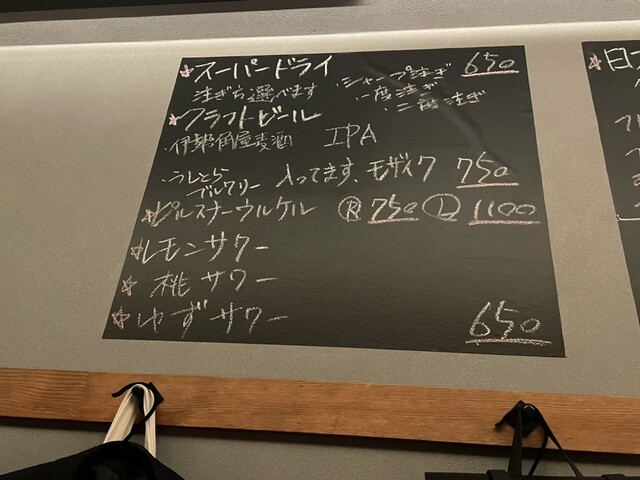 ☆スーパードライ ・シャープ注ぎ 650
注ぎ方選べます ・一度注ぎ
・二度注ぎ
☆クラフトビール
・伊勢角屋麦酒 IPA
・うしとらブルワリー 入ってます、モザイク 750
☆ピルスナーウルケル Ⓡ750 Ⓛ1100
☆レモンサワー
☆桃サワー
☆ゆずサワー 650